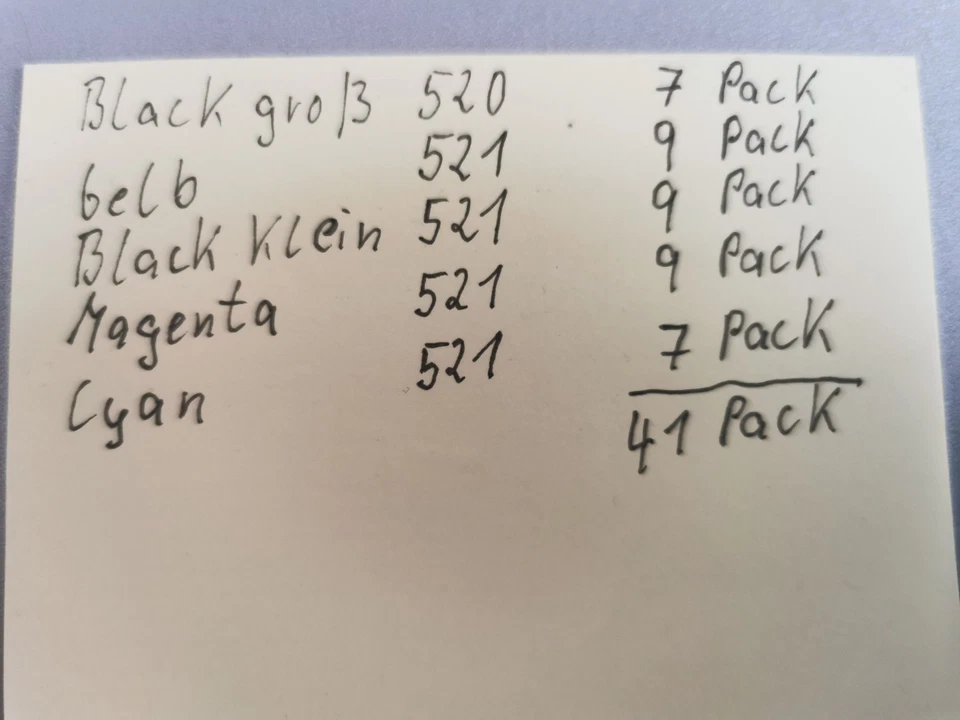 Black groß 520 7 Pack
Gelb 521 9 Pack
Black Klein 521 9 Pack
Magenta 521 9 Pack
Cyan 521 7 Pack
41 Pack